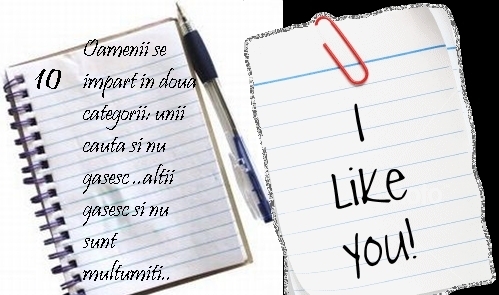 10
Oamenii se
impart in doua
categorii: unii
cauta si nu
gasesc ..altii
gasesc si nu
sunt
multumiti..
I
Like
you!